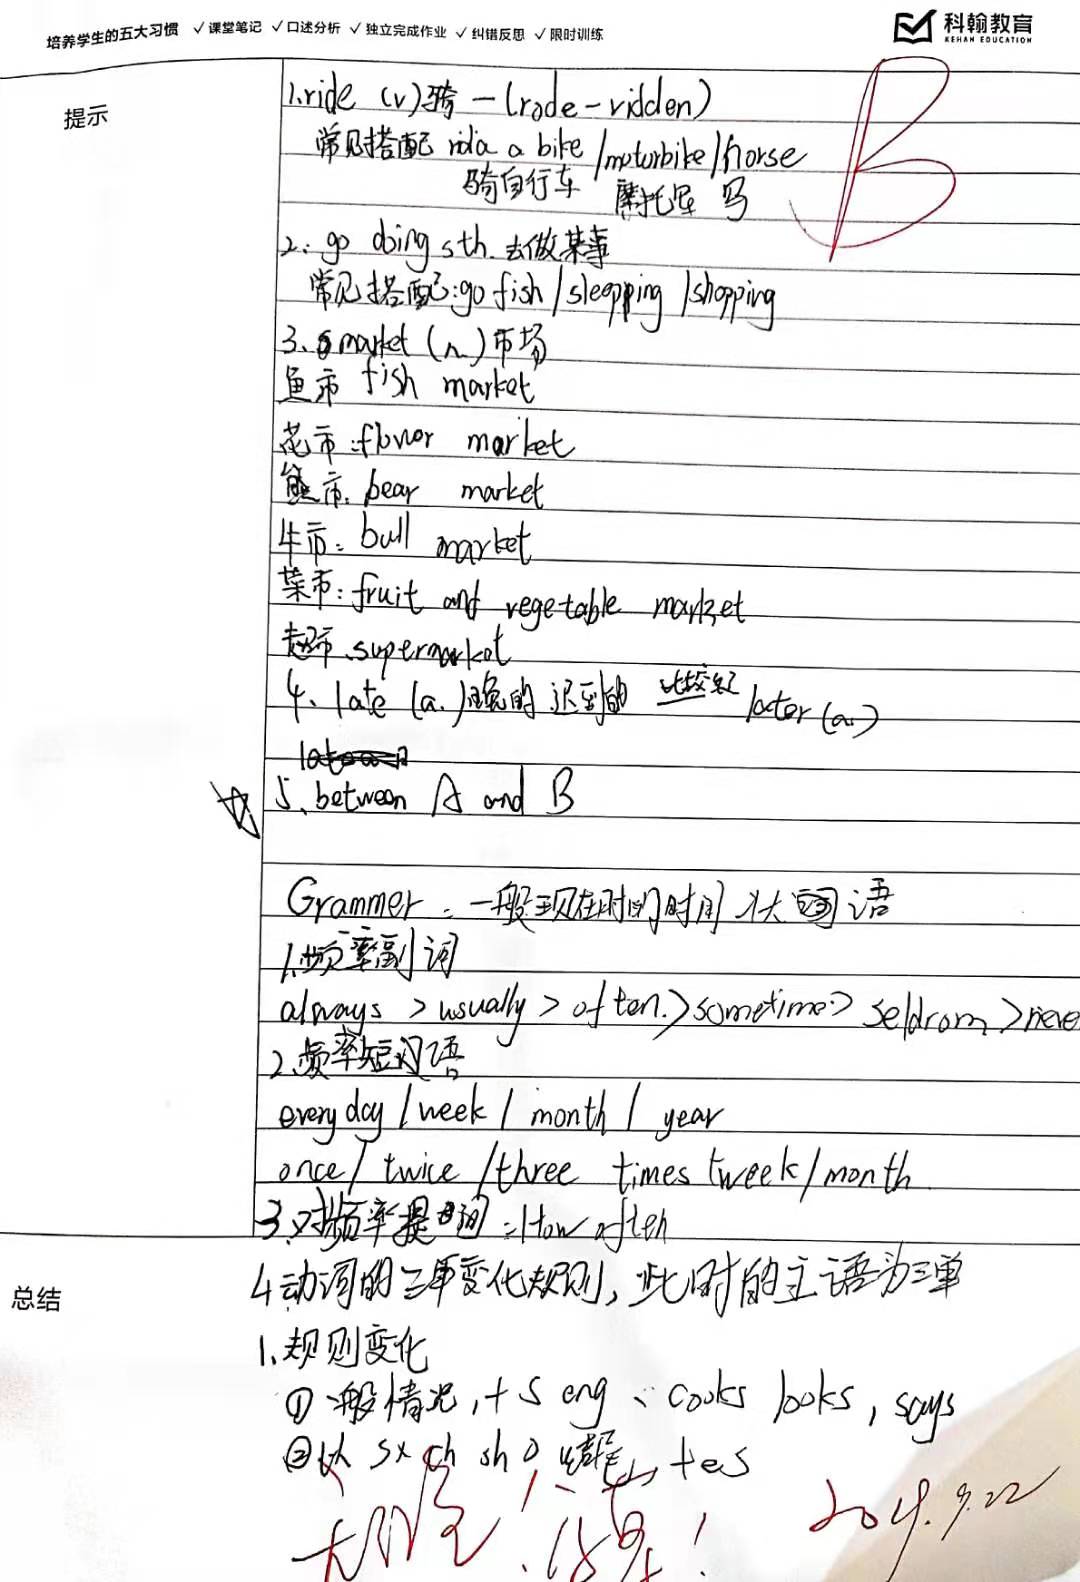 培养学生的五大习惯 ✓课堂笔记 ✓口述分析 ✓独立完成作业 ✓纠错反思 ✓限时训练
科翰教育
KEHAN EDUCATION
提示
B
1.ride (v)骑-(rode-ridden)
常见搭配 ride a bike/moturbike/horse
骑自行车 摩托车 马
2.go doing sth.去做某事
常见搭配:go fish/sleepping/shopping
3.market (n.)市场
鱼市 fish market
花市:flower market
熊市:bear market
牛市:bull market
菜市:fruit and vegetable market
超市:supermarket
4.late (a.)晚的 迟到的 比较级 later(a.)
5.between A and B
Grammer:一般现在时的时间状语
1.频率副词
always>usually>often>sometime>seldrom>never
2.频率短语
everyday/week/month/year
once/twice/three times week/month
3.对频率提问:How often
4动词的三单变化规则,此时的主语为三单
总结
1.规则变化
①一般情况,+s eng: cooks looks, says
②以 s x ch sh o 结尾,+es
2019.9.22